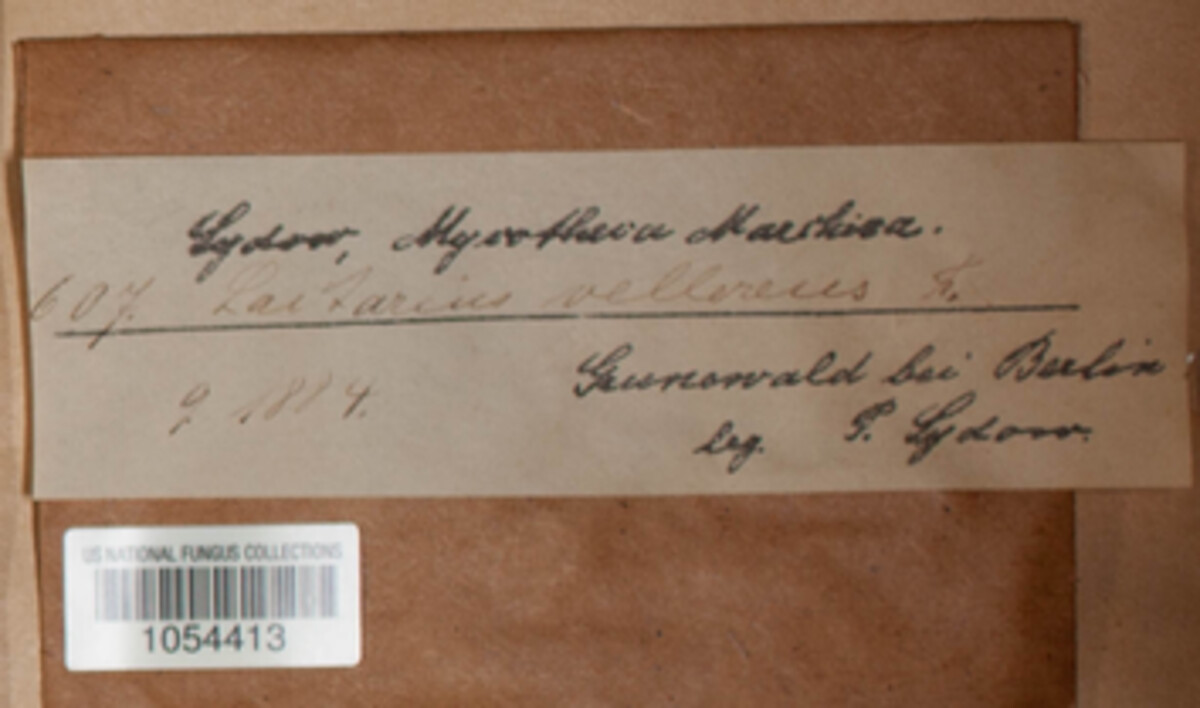 Sydow, Mycotheca Marchica.
607. Lactarius vellereus Fr.
9. 1884.
Grunewald bei Berlin
leg. P. Sydow.
US NATIONAL FUNGUS COLLECTIONS
1054413